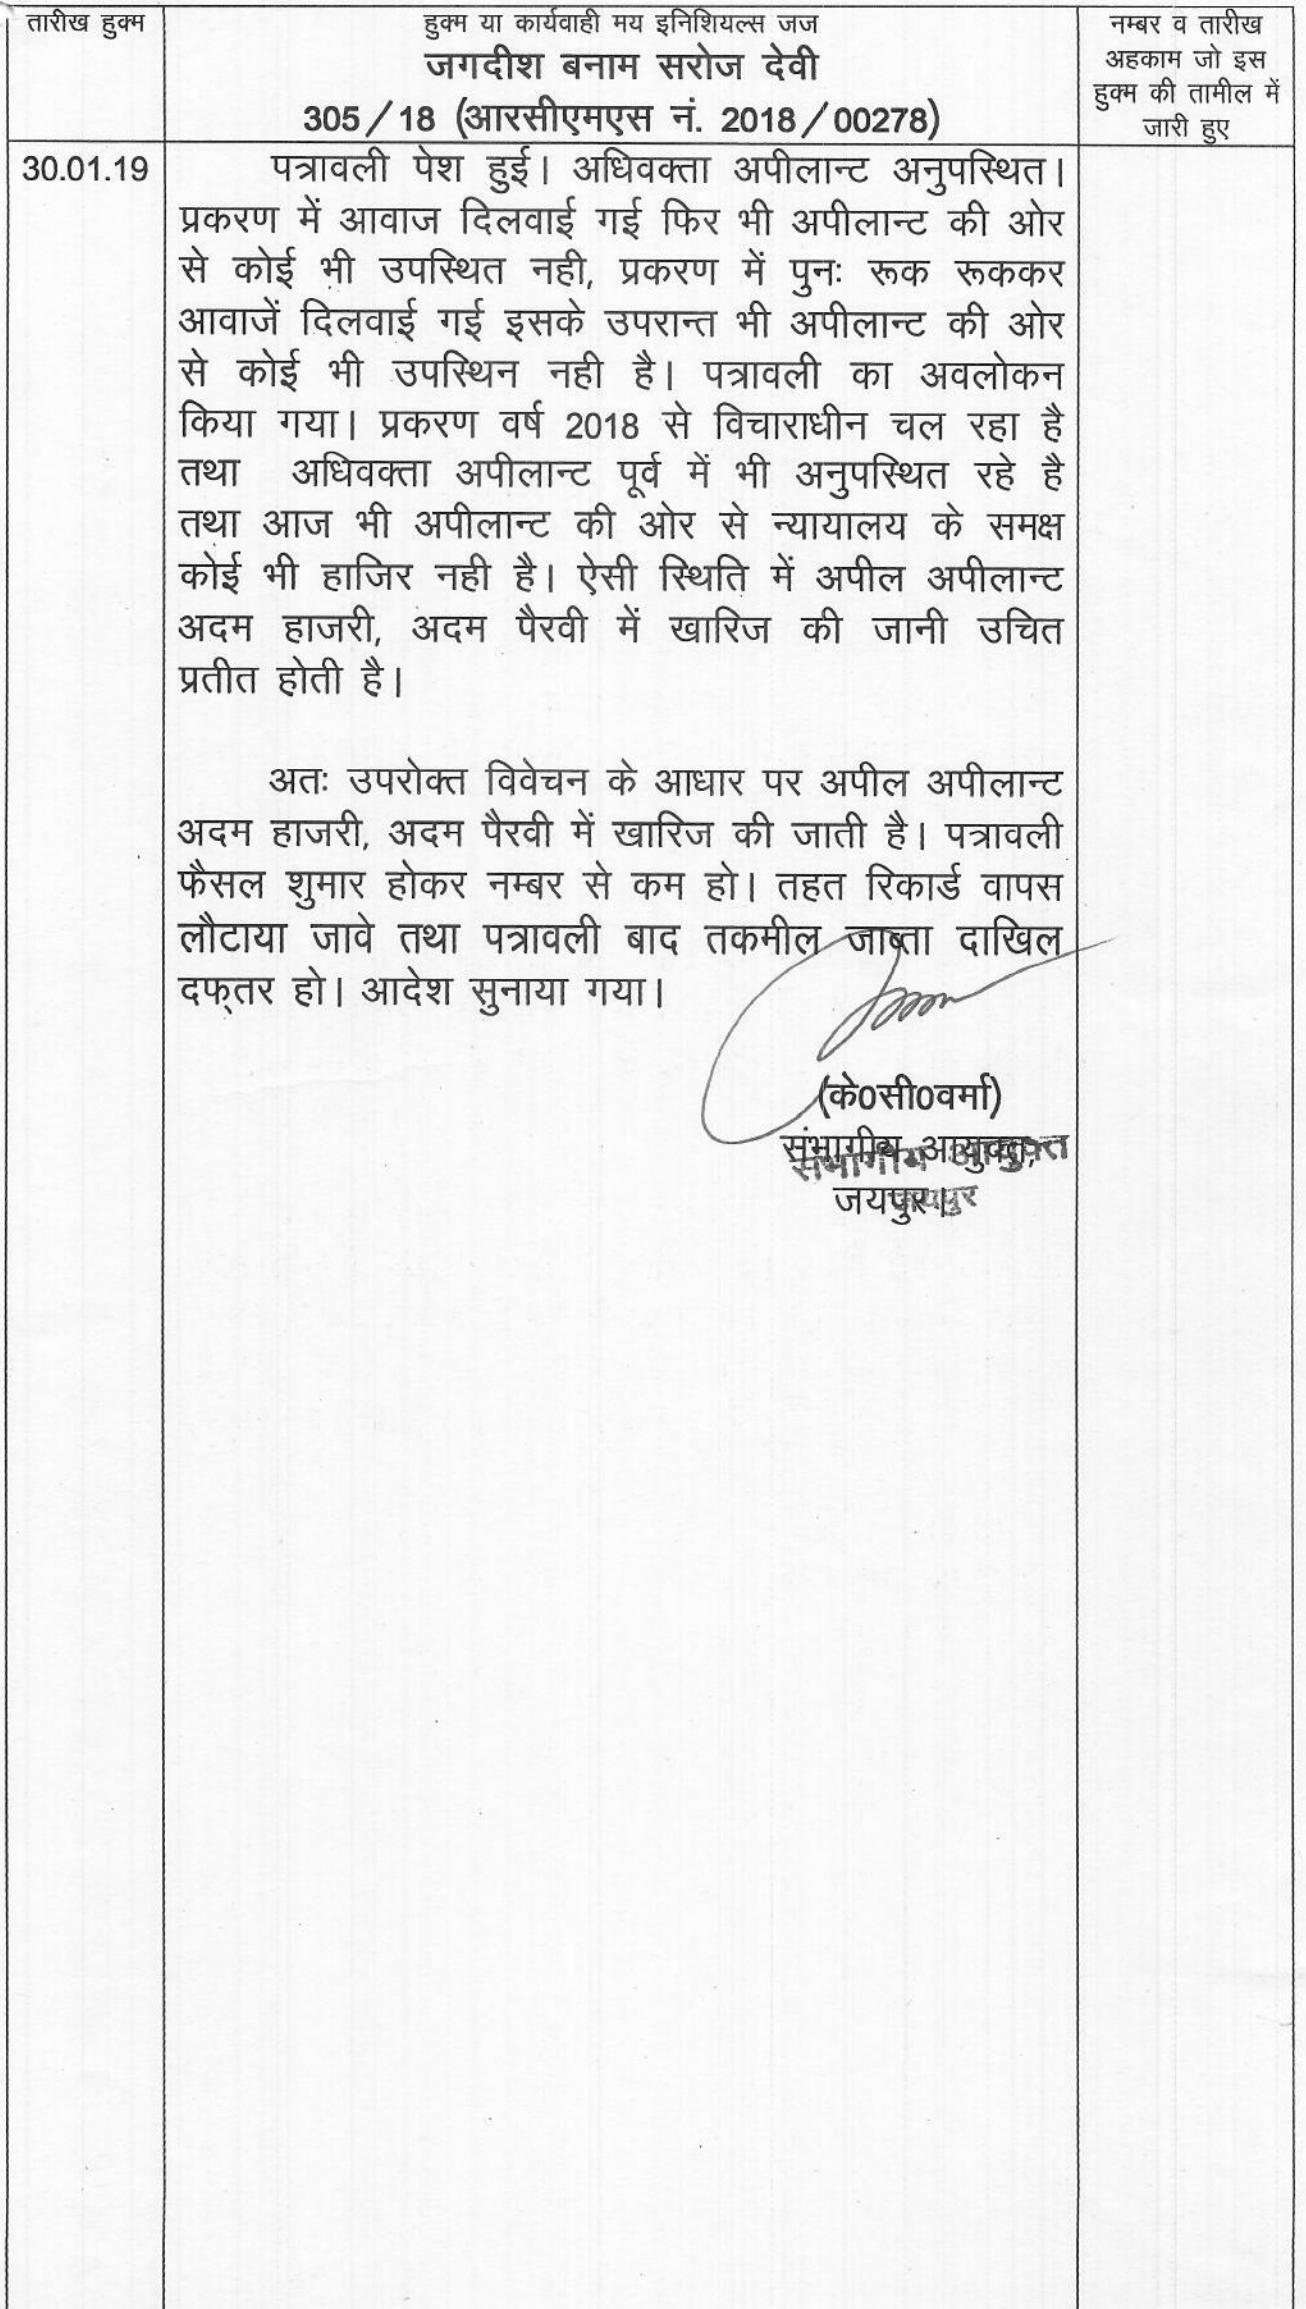 तारीख हुक्म
हुक्म या कार्यवाही मय इनिशियल्स जज
जगदीश बनाम सरोज देवी
305/18 (आरसीएमएस नं. 2018/00278)
नम्बर व तारीख
अहकाम जो इस
हुक्म की तामील में
जारी हुए
30.01.19
पत्रावली पेश हुई। अधिवक्ता अपीलान्ट अनुपस्थित।
प्रकरण में आवाज दिलवाई गई फिर भी अपीलान्ट की ओर
से कोई भी उपस्थित नही, प्रकरण में पुनः रूक रूककर
आवाजें दिलवाई गई इसके उपरान्त भी अपीलान्ट की ओर
से कोई भी उपस्थिन नही है। पत्रावली का अवलोकन
किया गया। प्रकरण वर्ष 2018 से विचाराधीन चल रहा है
तथा अधिवक्ता अपीलान्ट पूर्व में भी अनुपस्थित रहे है
तथा आज भी अपीलान्ट की ओर से न्यायालय के समक्ष
कोई भी हाजिर नही है। ऐसी स्थिति में अपील अपीलान्ट
अदम हाजरी, अदम पैरवी में खारिज की जानी उचित
प्रतीत होती है।
अतः उपरोक्त विवेचन के आधार पर अपील अपीलान्ट
अदम हाजरी, अदम पैरवी में खारिज की जाती है। पत्रावली
फैसल शुमार होकर नम्बर से कम हो। तहत रिकार्ड वापस
लौटाया जावे तथा पत्रावली बाद तकमील जाब्ता दाखिल
दफ्तर हो। आदेश सुनाया गया।
(के0सी0वर्मा)
संभागीय आयुक्त,
संभागीय आयुक्त
जयपुर।
जयपुर